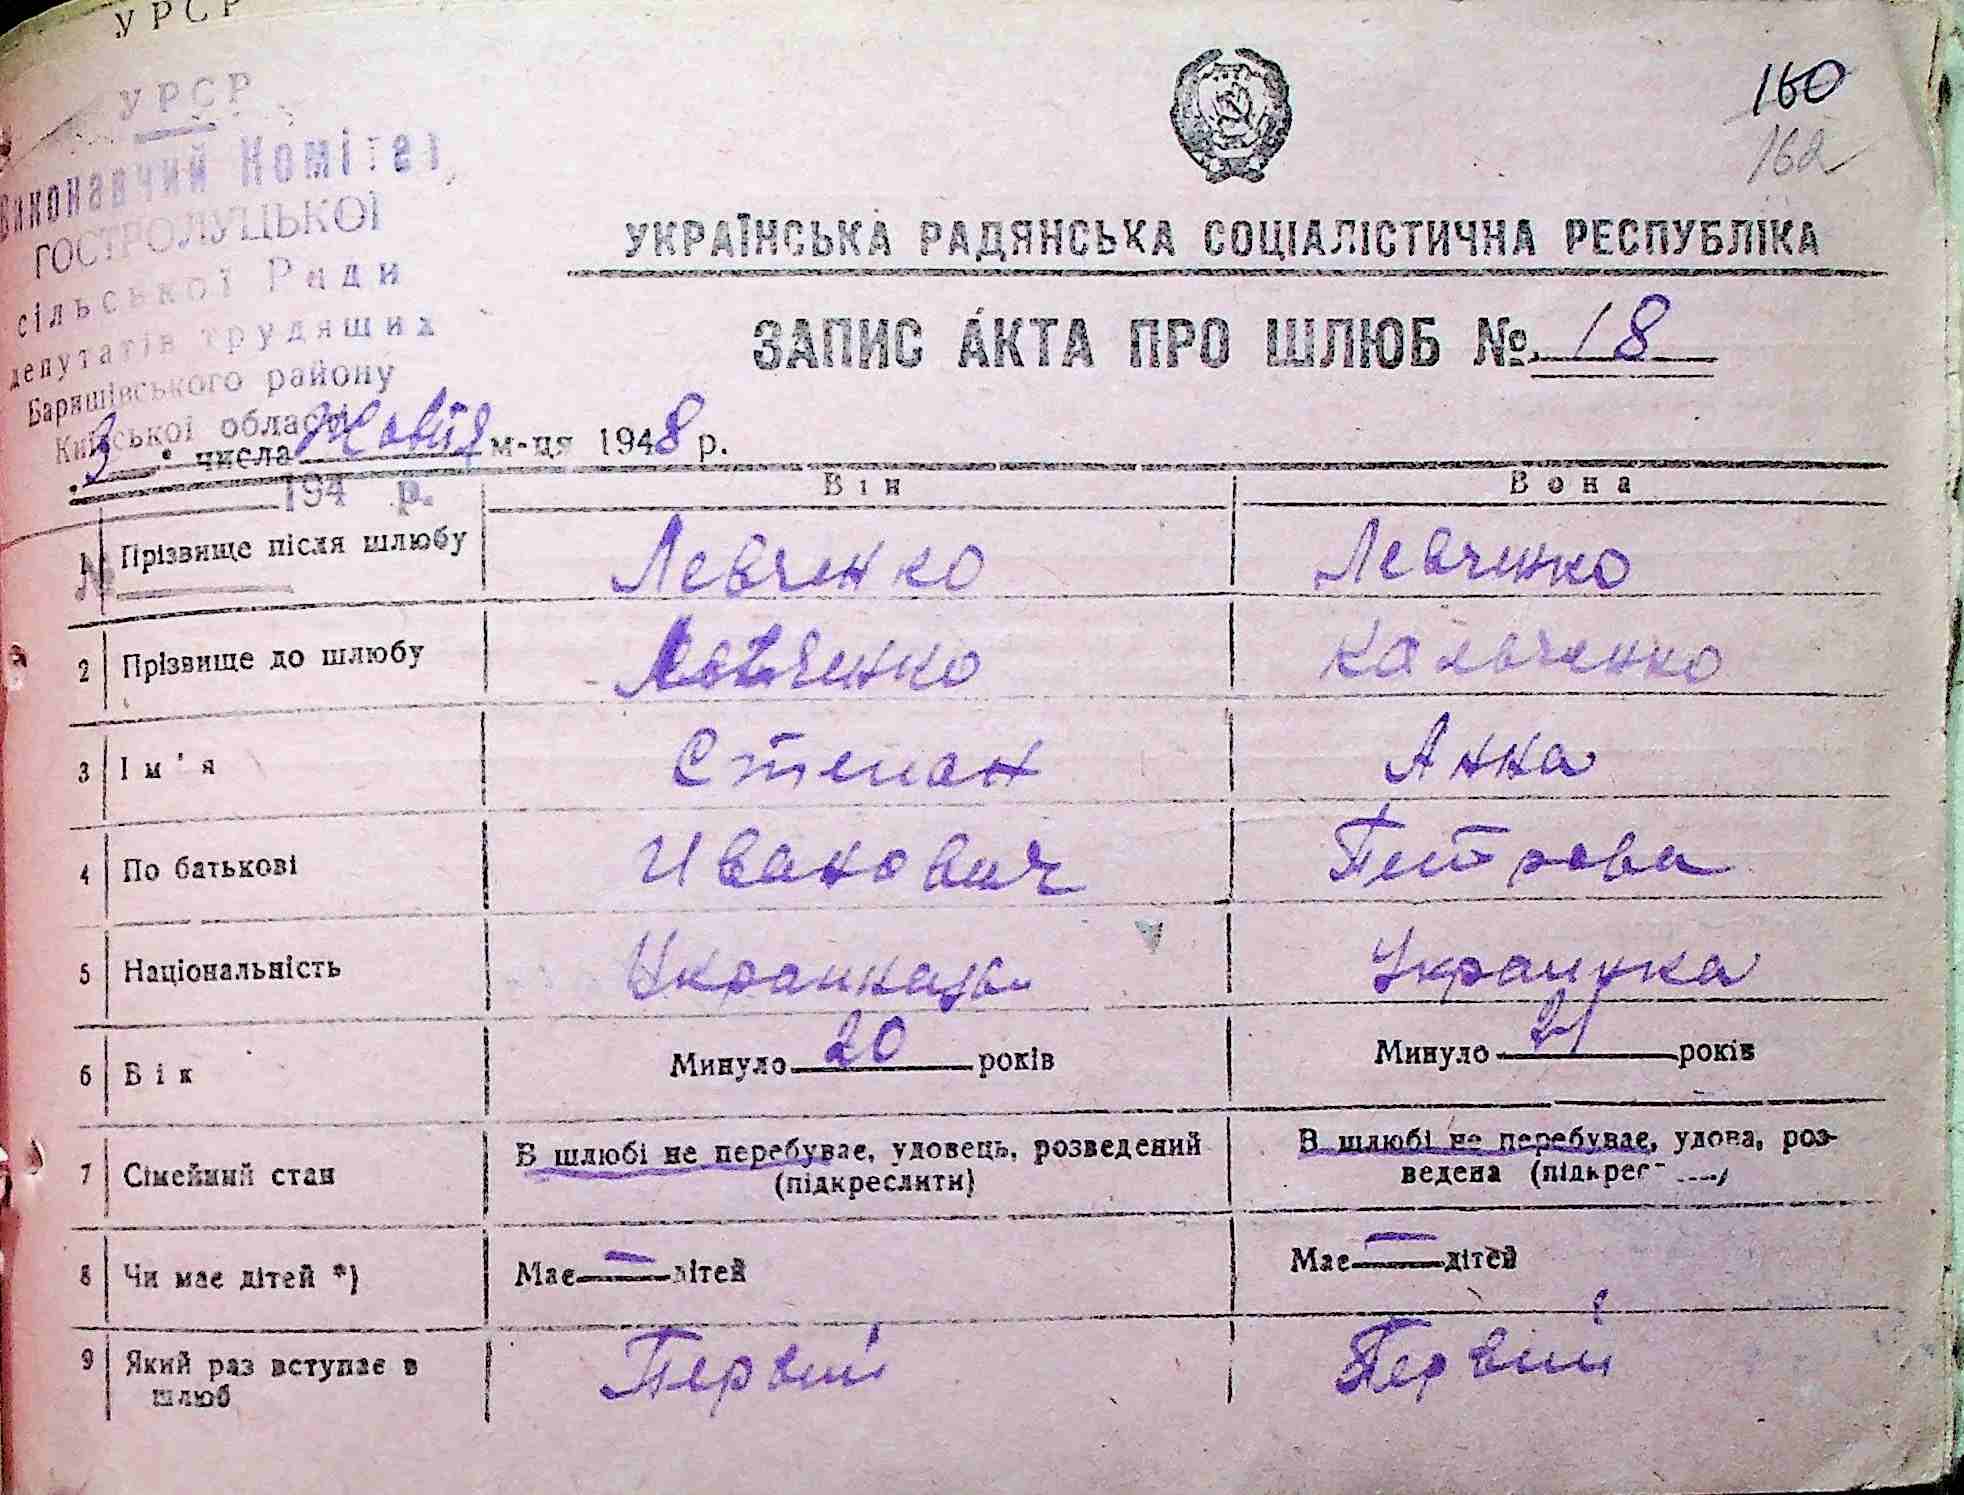 УРСР
160
162
УРСР
Виконавчий Комітет
ГОСТРОЛУЦЬКОЇ
сільської Ради
депутатів трудящих
Баришівського району
Київської області
194 р.
№
УКРАЇНСЬКА РАДЯНСЬКА СОЦІАЛІСТИЧНА РЕСПУБЛІКА
ЗАПИС АКТА ПРО ШЛЮБ № 18
"3" числа Жовтя м-ця 1948 р.
Він Вона
1 Прізвище після шлюбу Левченко Левченко
2 Прізвище до шлюбу Левченко Кальченко
3 Ім'я Степан Анна
4 По батькові Иванович Петрова
5 Національність Украинка
6 Вік Минуло 20 років Минуло 21 років
7 Сімейний стан В шлюбі не перебуває, удовець, розведений (підкреслити) В шлюбі не перебуває, удова, роз-
ведена
8 Чи має дітей *) Має — дітей Має — дітей
9 Який раз вступає в Первий Первий
шлюб